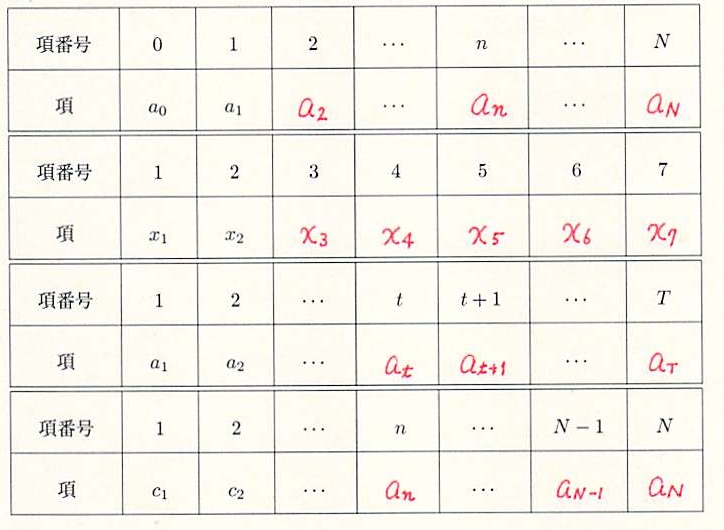 項番号 0 1 2 ⋯ n ⋯ N
項 a₀ a₁ a₂ ⋯ aₙ ⋯ a_N
項番号 1 2 3 4 5 6 7
項 x₁ x₂ x₃ x₄ x₅ x₆ x₇
項番号 1 2 ⋯ t t+1 ⋯ T
項 a₁ a₂ ⋯ a_t a_{t+1} ⋯ a_T
項番号 1 2 ⋯ n ⋯ N−1 N
項 c₁ c₂ ⋯ aₙ ⋯ a_{N-1} a_N